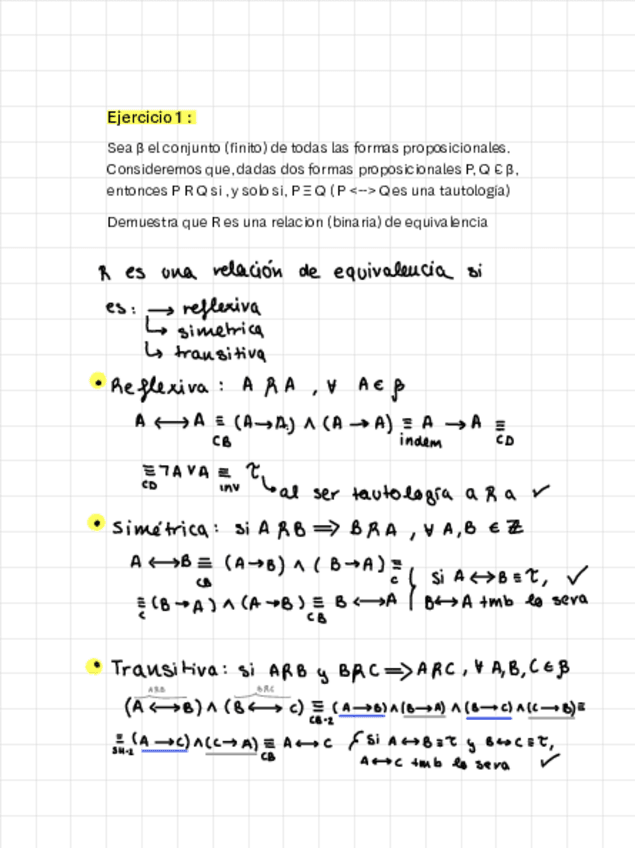 Ejercicio 1 :
Sea β el conjunto (finito) de todas las formas proposicionales.
Consideremos que, dadas dos formas proposicionales P, Q Є β,
entonces P R Q si , y solo si, P Ξ Q ( P <--> Q es una tautología)
Demuestra que R es una relacion (binaria) de equivalencia
R es una relación de equivalencia si
es: → reflexiva
↳ simetrica
↳ transitiva
• Reflexiva : A R A , ∀ A ∈ β
A ⟷ A ≡ (A → A) ∧ (A → A) ≡ A → A ≡
CB indem CD
≡ ¬A ∨ A ≡ τ
CD inv
↳ al ser tautología a R a ✓
• Simétrica : si A R B ⟹ B R A , ∀ A, B ∈ Z
A ⟷ B ≡ (A → B) ∧ ( B → A) ≡
CB C
si A ⟷ B ≡ τ, ✓
≡ (B → A) ∧ (A → B) ≡ B ⟷ A
C CB
B ⟷ A tmb lo sera
• Transitiva : si A R B y B R C ⟹ A R C , ∀ A, B, C ∈ β
ARB BRC
(A ⟷ B) ∧ (B ⟷ C) ≡ (A → B) ∧ (B → A) ∧ (B → C) ∧ (C → B) ≡
CB-2
≡ (A → C) ∧ (C → A) ≡ A ⟷ C
SH-2 CB
si A ⟷ B ≡ τ y B ⟷ C ≡ τ,
A ⟷ C tmb lo sera ✓